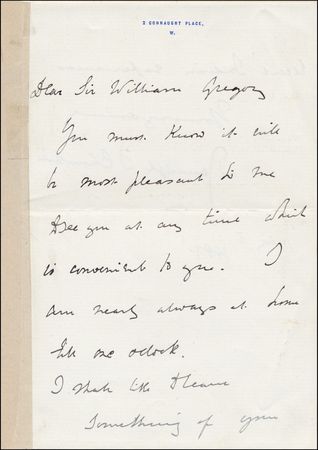 2 CONNAUGHT PLACE,
W.
Dear Sir William Gregory
You must know it will
be most pleasant to me
to see you at any time which
is convenient to you. I
am nearly always at home
till one o'clock.
I shall like to learn
something of your